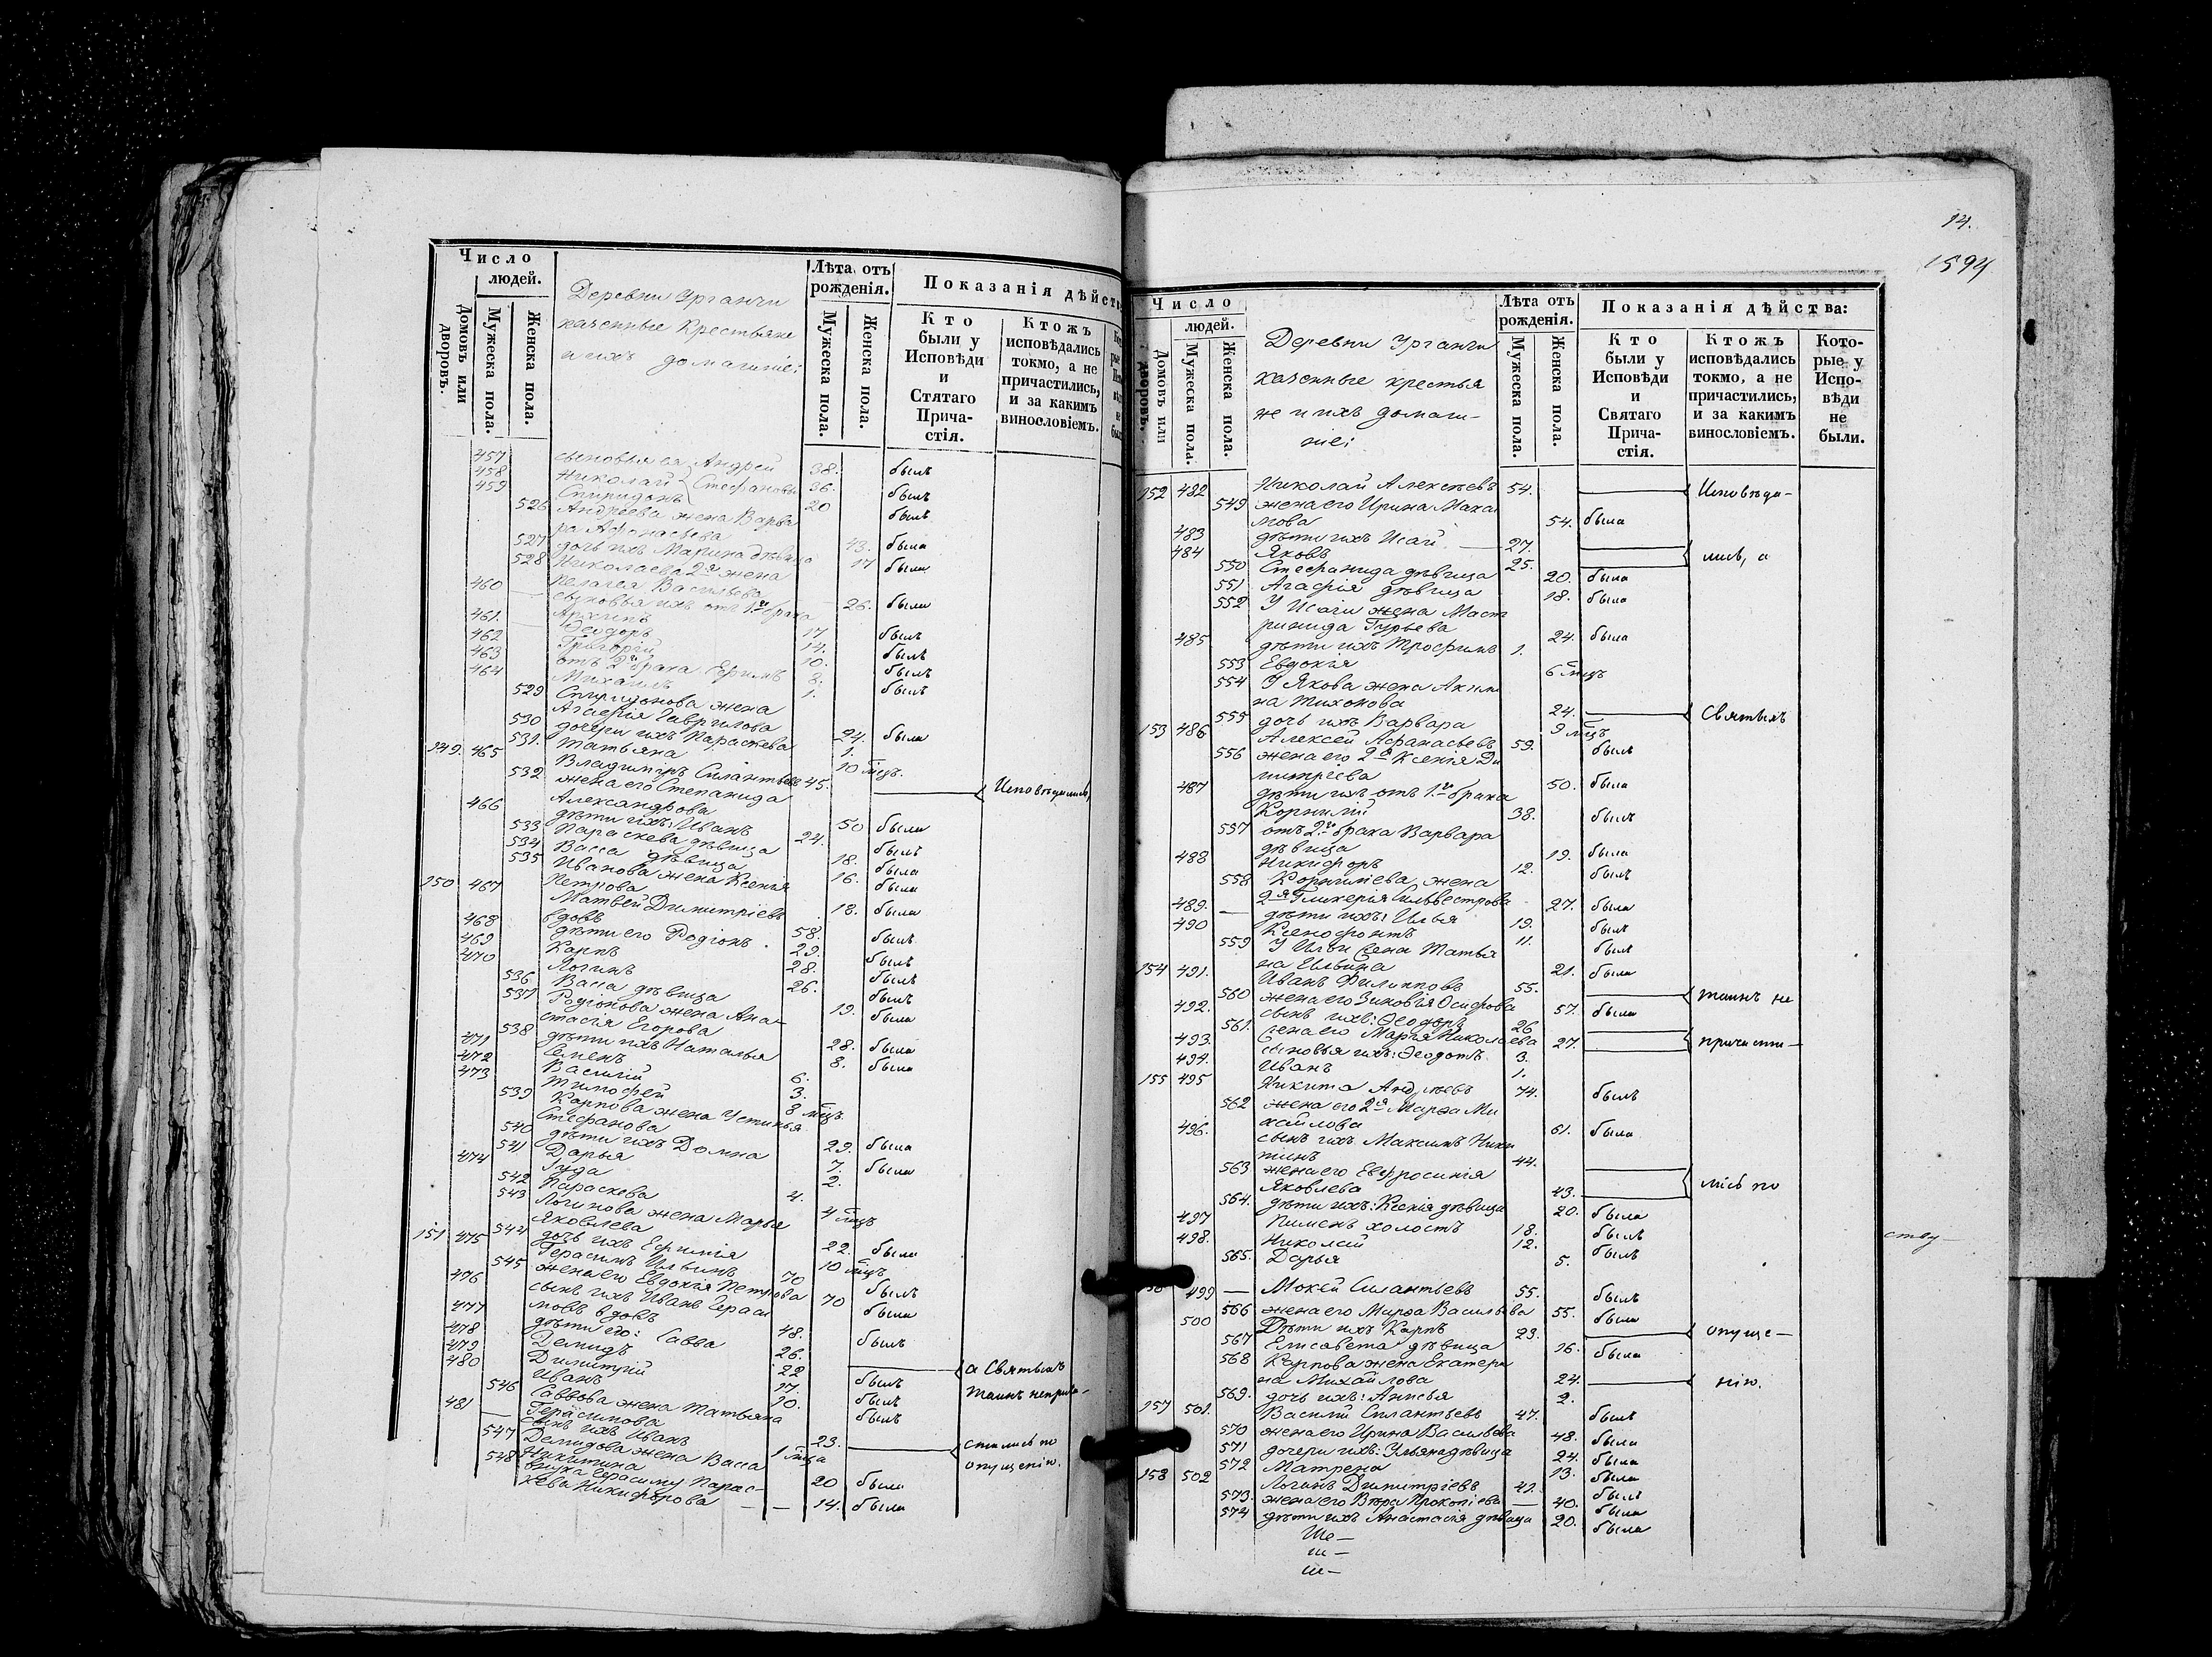 Число
людей.
Домовъ или дворовъ.
Мужеска пола.
Женска пола.
Деревни Урганчи
казенные Крестьяне
и ихъ домашніе:
Лѣта отъ
рожденія.
Мужеска пола.
Женска пола.
Показанія дѣйст
Кто
были у
Исповѣди
и
Стятаго
Прича-
стія.
Ктожъ
исповѣдались
токмо, а не
причастились,
и за какимъ
винословіемъ.
457 сыновья ея Андрей 38. былъ
458 Николай Стефановы 36. былъ
459 Спиридонъ 20 былъ
526 Андреева жена Варва
ра Афонасьева 43. была
527 дочь ихъ Марина дѣвица 17 была
528 Николаева 2я жена
Пелагея Васильева 26. была
сыновья ихъ отъ 1го брака
460 Архипъ 17 былъ
461. Ѳеодоръ 14. былъ
462 Григорій 10. былъ
463 отъ 2го брака Ефимъ 8. былъ
464 Михаилъ 1.
529 Спиридонова жена
Агафія Гаврилова 24. была
530 дочери ихъ Параскева 1.
531. Татьяна 10 мцъ.
149. 465 Владимиръ Силантьевъ 45. Исповѣдались,
532 жена его Степанида
Александрова 50 была
466 дѣти ихъ: Иванъ 24. былъ
533 Параскева дѣвица 18. была
534 Васса дѣвица 16. была
535 Иванова жена Ксенія
Петрова 18. была
150 467 Матвей Димитріевъ
вдовъ 58. былъ
468 дѣти его Родіонъ 29. былъ
469 Карпъ 28. былъ
470 Логинъ 26. былъ
536 Васса дѣвица 19. была
537 Родіонова жена Ана-
стасія Егорова 28. была
538 дѣти ихъ Наталья 8. была
471 Семенъ 6.
472 Василій 3.
473 Тимофей 8 мцъ
539 Карпова жена Устинья
Стефанова 29. была
540 дѣти ихъ Домна 7. была
541 Дарья 2.
474 Іуда 4.
542 Параскева 4 мцъ
543 Логинова жена Марья
Яковлева 22. была
544 дочь ихъ Ефимія 10 мцъ
151 475 Герасимъ Ильинъ 70 былъ
545 жена его Евдокія Петрова 70 была
476 сынъ ихъ Иванъ Гераси
мовъ вдовъ 48. былъ
477 дѣти его: Савва 26. а Святыхъ
478 Демидъ 22 былъ Таинъ неприча-
479 Димитрій 17. былъ
480 Иванъ 10. былъ
546 Саввова жена Татьяна
Герасимова 23. стились по
481 сынъ ихъ Иванъ 1 мца опущенію.
547 Демидова жена Васса
Никитина 20 была
548 внука Герасиму Парас-
кева Никифорова 14. была
14.
1594
Число
людей.
Домовъ или дворовъ.
Мужеска пола.
Женска пола.
Деревни Урганчи
казенные крестья
не и ихъ домаш-
ніе:
Лѣта отъ
рожденія.
Мужеска пола.
Женска пола.
Показанія дѣйства:
Кто
были у
Исповѣди
и
Святаго
Прича-
стія.
Ктожъ
исповѣдались
токмо, а не
причастились,
и за какимъ
винословіемъ.
Кото-
рые у
Испо-
вѣди
не
были.
152 482 Николай Алексѣевъ 54. Исповѣда-
549 жена его Ирина Мака
рова 54. была
483 дѣти ихъ Исай 27. лись, а
484 Яковъ 25.
550 Стефанида дѣвица 20. была
551 Агафія дѣвица 18. была
552 У Исаіи жена Мастридида Гурьева 24. была
485 дѣти ихъ Трофимъ 1.
553 Евдокія 6 мцъ
554 У Якова жена Акили
на Тихонова 24. Святыхъ
555 дочь ихъ Варвара 9 мцъ
153 486 Алексей Афанасьевъ 59. былъ
556 жена его 2я Ксенія Ди
митріева 50. была
487 дѣти ихъ отъ 1го брака
Корнилій 38. былъ
557 отъ 2го брака Варвара
дѣвица 19. была
488 Никифоръ 12. былъ
558 Корнилієва жена
2я Гликерія Сильвестрова 27. была
489. дѣти ихъ: Илья 19. былъ
490 Ксенофонтъ 11. былъ
559 У Ильи жена Татья
на Ильина 21. была
154 491. Иванъ Филипповъ 55. таинъ не
560 жена его Зиновія Осифова 57. была
492. сынъ ихъ: Ѳеодоръ 26 причасти-
561. жена его Марѳа Николаева 27.
493. сыновья ихъ: Ѳеодотъ 3.
494. Иванъ 1.
155 495 Никита Андреевъ 74. былъ
562 жена его 2я Марѳа Ми
хайлова 61. была
496. сынъ ихъ Максимъ Ники
тинъ 44.
563 жена его Евфросинія
Яковлева 43. лись по
564. дѣти ихъ: Ксенія дѣвица 20. была
497 Пименъ холостъ 18. былъ
498. Николай 12. былъ
565. Дарья 5.
ству-
499 Мокей Силантьевъ 55. былъ
566 жена его Марѳа Васильева 55. была
500 Дѣти ихъ Карпъ 23. опуще-
567 Елисавета дѣвица 16. была
568 Карпова жена Екатери
на Михайлова 24. нію.
569. дочь ихъ: Анисья 2.
157 501. Василій Силантьевъ 47. былъ
570 жена его Ирина Васильева 48. была
571 дочери ихъ: Ульяна дѣвица 24. была
572 Матрена 13. была
158 502 Логинъ Димитріевъ 42. былъ
573. жена его Вѣра Прокопіева 40. была
574 дѣти ихъ Анастасія дѣвица 20. была
Ше-
ш-
ш-